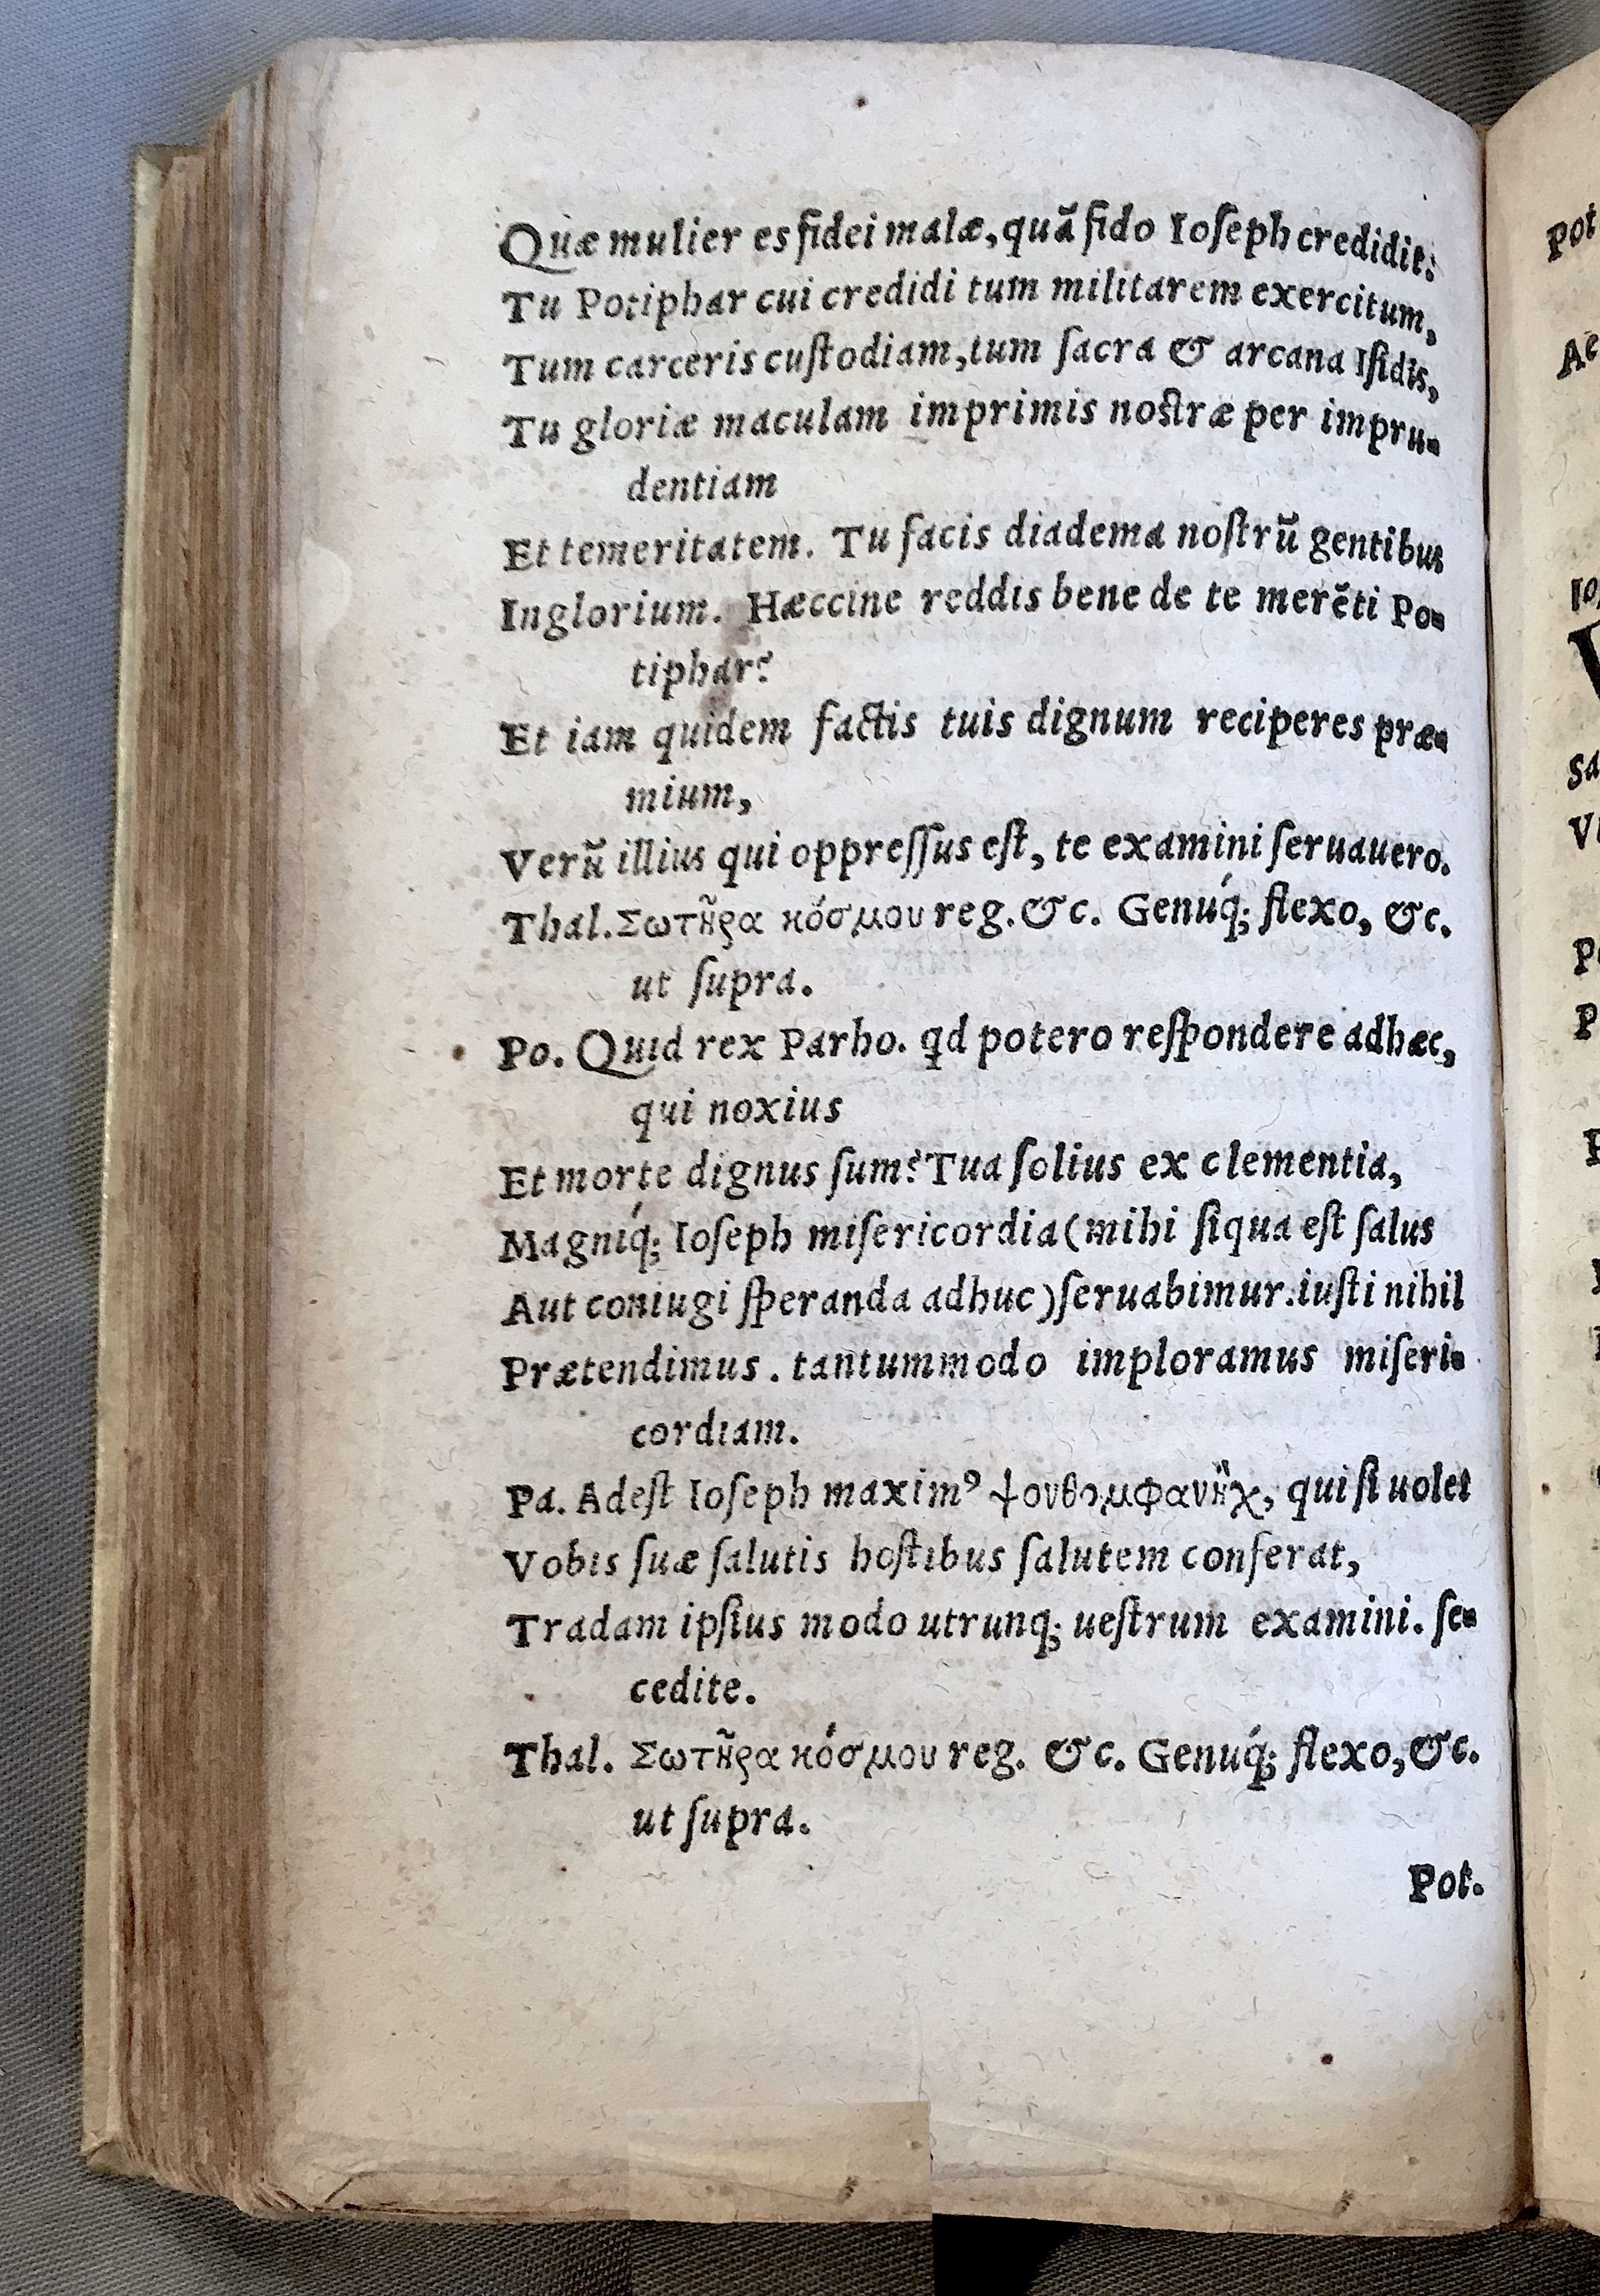 Quæ mulier es fidei malæ, quã fido Ioſeph credidit:
Tu Potiphar cui credidi tum militarem exercitum,
Tum carceris cuſtodiam, tum ſacra & arcana Iſidis,
Tu gloriæ maculam imprimis noſtræ per impru-
dentiam
Et temeritatem. Tu facis diadema noſtrũ gentibus
Inglorium. Hæccine reddis bene de te merẽti Po-
tiphar?
Et iam quidem factis tuis dignum reciperes præ-
mium,
Verũ illius qui oppreſſus eſt, te examini ſeruauero.
Thal. Σωτῆρα κόσμου reg. &c. Genuq́; flexo, &c.
ut ſupra.
Po. Quid rex Parho. qd potero reſpondere adhæc,
qui noxius
Et morte dignus ſum? Tua ſolius ex clementia,
Magniq́; Ioſeph miſericordia (mihi ſiqua eſt ſalus
Aut coniugi ſperanda adhuc) ſeruabimur. iuſti nihil
Prætendimus. tantummodo imploramus miſeri-
cordiam.
Pa. Adeſt Ioſeph maximꝰ ψονθομφανὴχ, qui ſi uolet
Vobis ſuæ ſalutis hoſtibus ſalutem conferat,
Tradam ipſius modo utrunq; ueſtrum examini. ſe-
cedite.
Thal. Σωτῆρα κόσμου reg. &c. Genuq́; flexo, &c.
ut ſupra.
Pot.
Pot
Ae
Sa